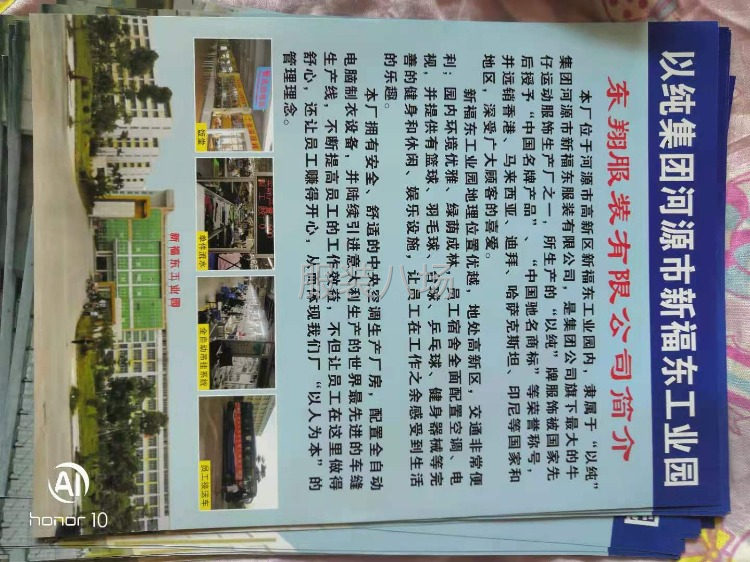 以纯集团河源市新福东工业园
东翔服装有限公司简介
本厂位于河源市高新区新福东工业园内，隶属于“以纯”
集团河源市新福东服装有限公司，是集团公司旗下最大的牛
仔运动服饰生产厂之一，所生产的“以纯”牌服饰被国家先
后授予“中国名牌产品”、“中国驰名商标”等荣誉称号，
并远销香港、马来西亚、迪拜、哈萨克斯坦、印尼等国家和
地区，深受广大顾客的喜爱。
新福东工业园地理位置优越，地处高新区，交通非常便
利；园内环境优雅，绿荫成林，员工宿舍全面配置空调、电
视，并提供有篮球、羽毛球、球、乒乓球、健身器械等完
善的健身和休闲、娱乐设施，让员工在工作之余感受到生活
的乐趣。
本厂拥有安全、舒适的中央空调生产厂房，配置全自动
电脑制衣设备，并陆续引进意大利生产的世界最先进的车缝
生产线，不断提高员工的工作效益，不但让员工在这里做得
舒心，还让员工赚得开心，从而体现我们厂“以人为本”的
管理理念。
饭堂
单件流水
全自动吊挂系统
员工接送车
新福东工业园
服装八场
AI
honor 10